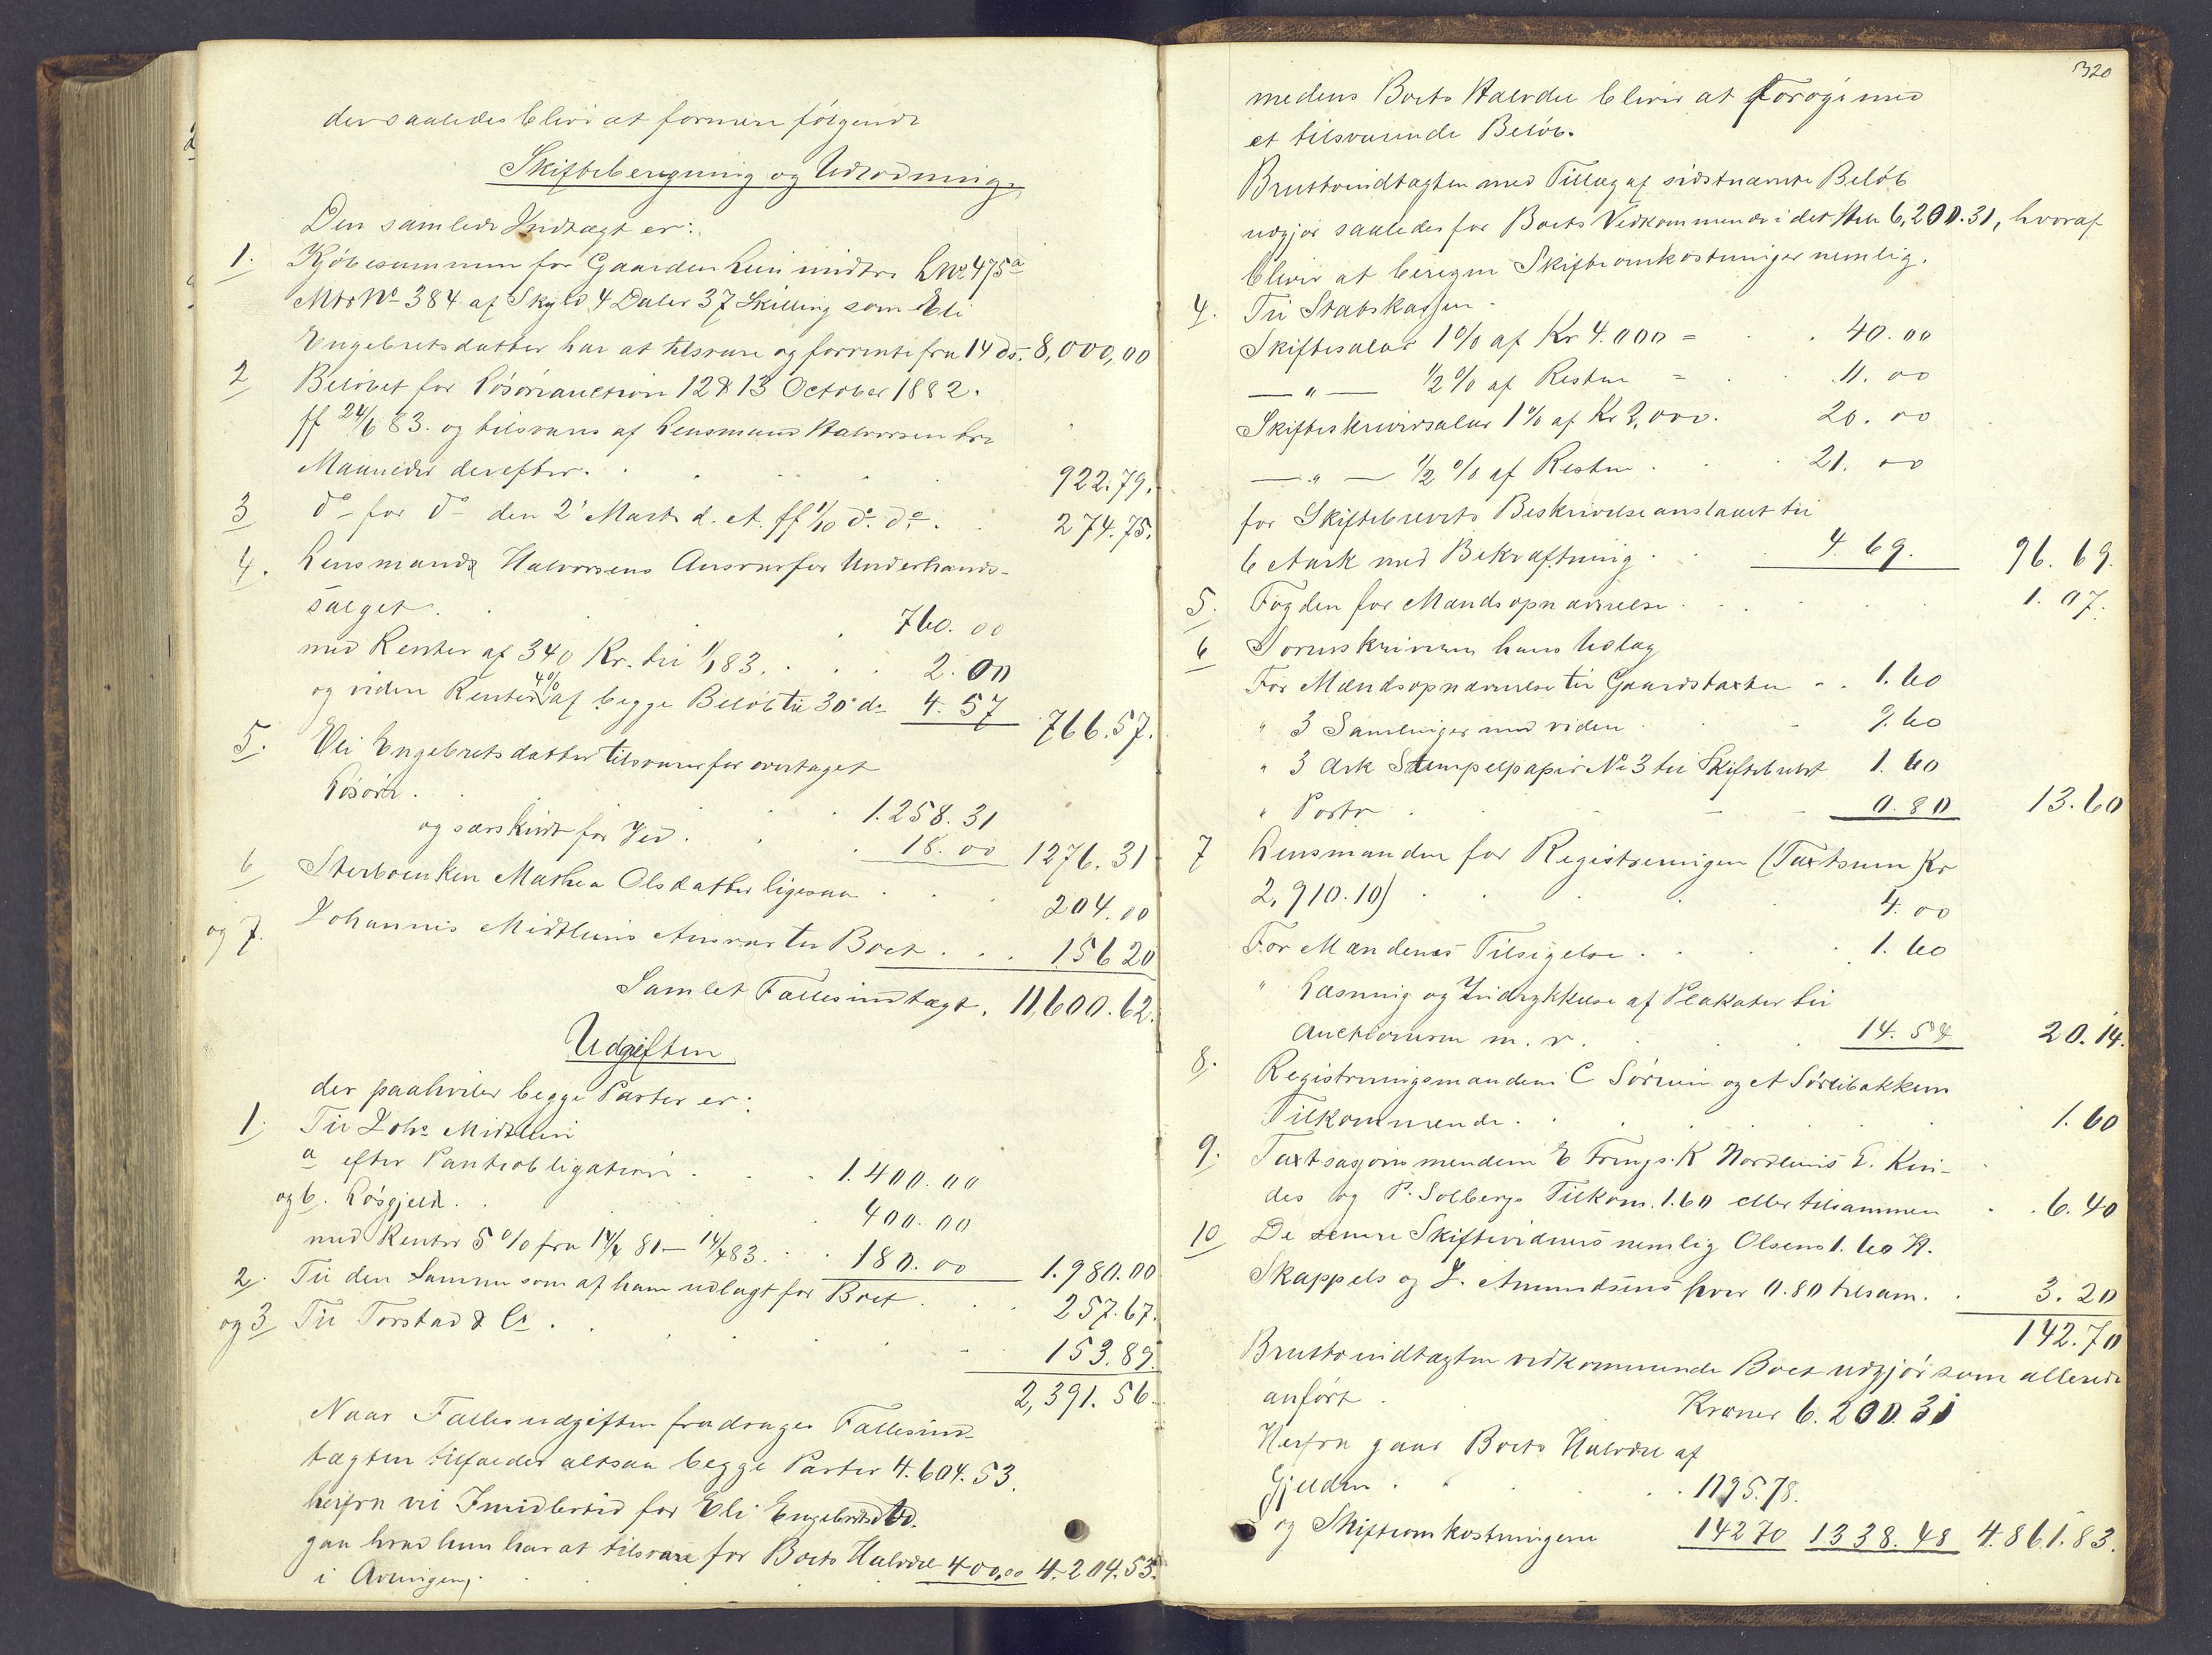 der saaledes bliver at formere følgende
Skifteberegning og Udlodning.
Den samlede Indtægt er:
1. Kjøbesummen for Gaarden Lein midtre LNo 475a
Mtr No 384 af Skyld 4 Daler 37 Skilling som Eli
Engebretsdatter har at tilsvare og forrente fra 14 ds. 8,000,00
2 Beløbet for Løsøreauction 12 & 13 October 1882.
ff 24/6 83. og tilsvares af Lensmand Halvorsen tre
Maaneder derefter. 922.79.
3 do for do den 2' Marts d. A. ff 1/10 do. do. 274.75.
4. Lensmand Halvorsens Ansvar for Underhands-
salget. 760.00
med Renter af 340 Kr. til 1/1 83. 2.00
og videre Renter 4% af begge Beløb til 30' ds 4.57 766.57.
5. Eli Engebretsdatter tilsvarer for overtaget
Løsøre. 1.258.31
og særskilt for Ved. 18.00 1276.31
6 Sterboenken Mathea Olsdatter ligesaa 204.00
og 7. Johannes Midtleins Ansvar til Boet 156 20
Samlet Fællesindtægt. 11,600.62.
Udgiften
der paahviler begge Parter er:
1. Til Johs Midtlein
a efter Panteobligation 1.400.00
og b. Løsgjeld. 400.00
med Renter 5% fra 14/4 81 - 14/4 83. 180.00 1.980.00
2. Til den Samme som af ham udlagt for Boet 257.67.
og 3 Til Torstad & Co. 153.89.
2,391.56.
Naar Fællesudgiften fradrages Fællesind-
tægten tilfalder altsaa begge Parter 4.604.53.
herfra vil Imidlertid for Eli Engebretsdtd.
gaa hvad hun har at tilsvare for Boets Halvdel 400,00 4.204.53.
i Avlingen.
320
medens Boets Halvdel bliver at forøge med
et tilsvarende Beløb.
Bruttoindtægten med Tillæg af sidstnævnte Beløb
udgjør saaledes for Boets Vedkommende i det Hele 6,200.31, hvoraf
bliver at beregne Skifteomkostninger nemlig.
4. Til Statskassen.
Skiftesalær 1% af Kr 4.000 = 40.00
—"— 1/2% af Resten = 11.00
Skifteskriversalær 1% af Kr 2,000. 20.00
—"— 1/2% af Resten. 21.00
for Skiftebrevets Beskrivelse anslaaet til
6 Aark med Bekræftning 4.69. 96.69.
5. Fogden for Mandsopnævnelse 1.07.
6 Sorenskriveren hans Udlæg
For Mændsopnævnelse til Gaardstaxten 1.60
" 3 Samlinger med viden 9.60
" 3 Ark Stempelpapir No 3 til Skiftebrevet 1.60
" Porto 0.80 13.60
7 Lensmanden for Registreringen (Taxtsum Kr
2,910.10) 4.00
For Mændenes Tilsigelse 1.60
" Læsning og Indrykkelse af Plakater til
Auctionerne m. v. 14.54 20.14.
8. Registreringsmændene C Sørlein og A Sørlibakkens
Tilkommende. 1.60
9. Taxtsasjons mændene E K Nordleins
des og P. Solbergs Tilkom. 1.60 eller tilsammen 6.40
10 De senere Skiftevidners nemlig Olsens 1.60 H.
Skappels og J. Amundsens hver 0.80 tilsam. 3.20
142.70
Bruttoindtægten vedkommende Boet udgjør som allerede
anført Kroner 6.200.31
Herfra gaar Boets Halvdel af
Gjelden 1195.78.
og Skifteomkostningerne 142 70 1338.48 4.861.83.